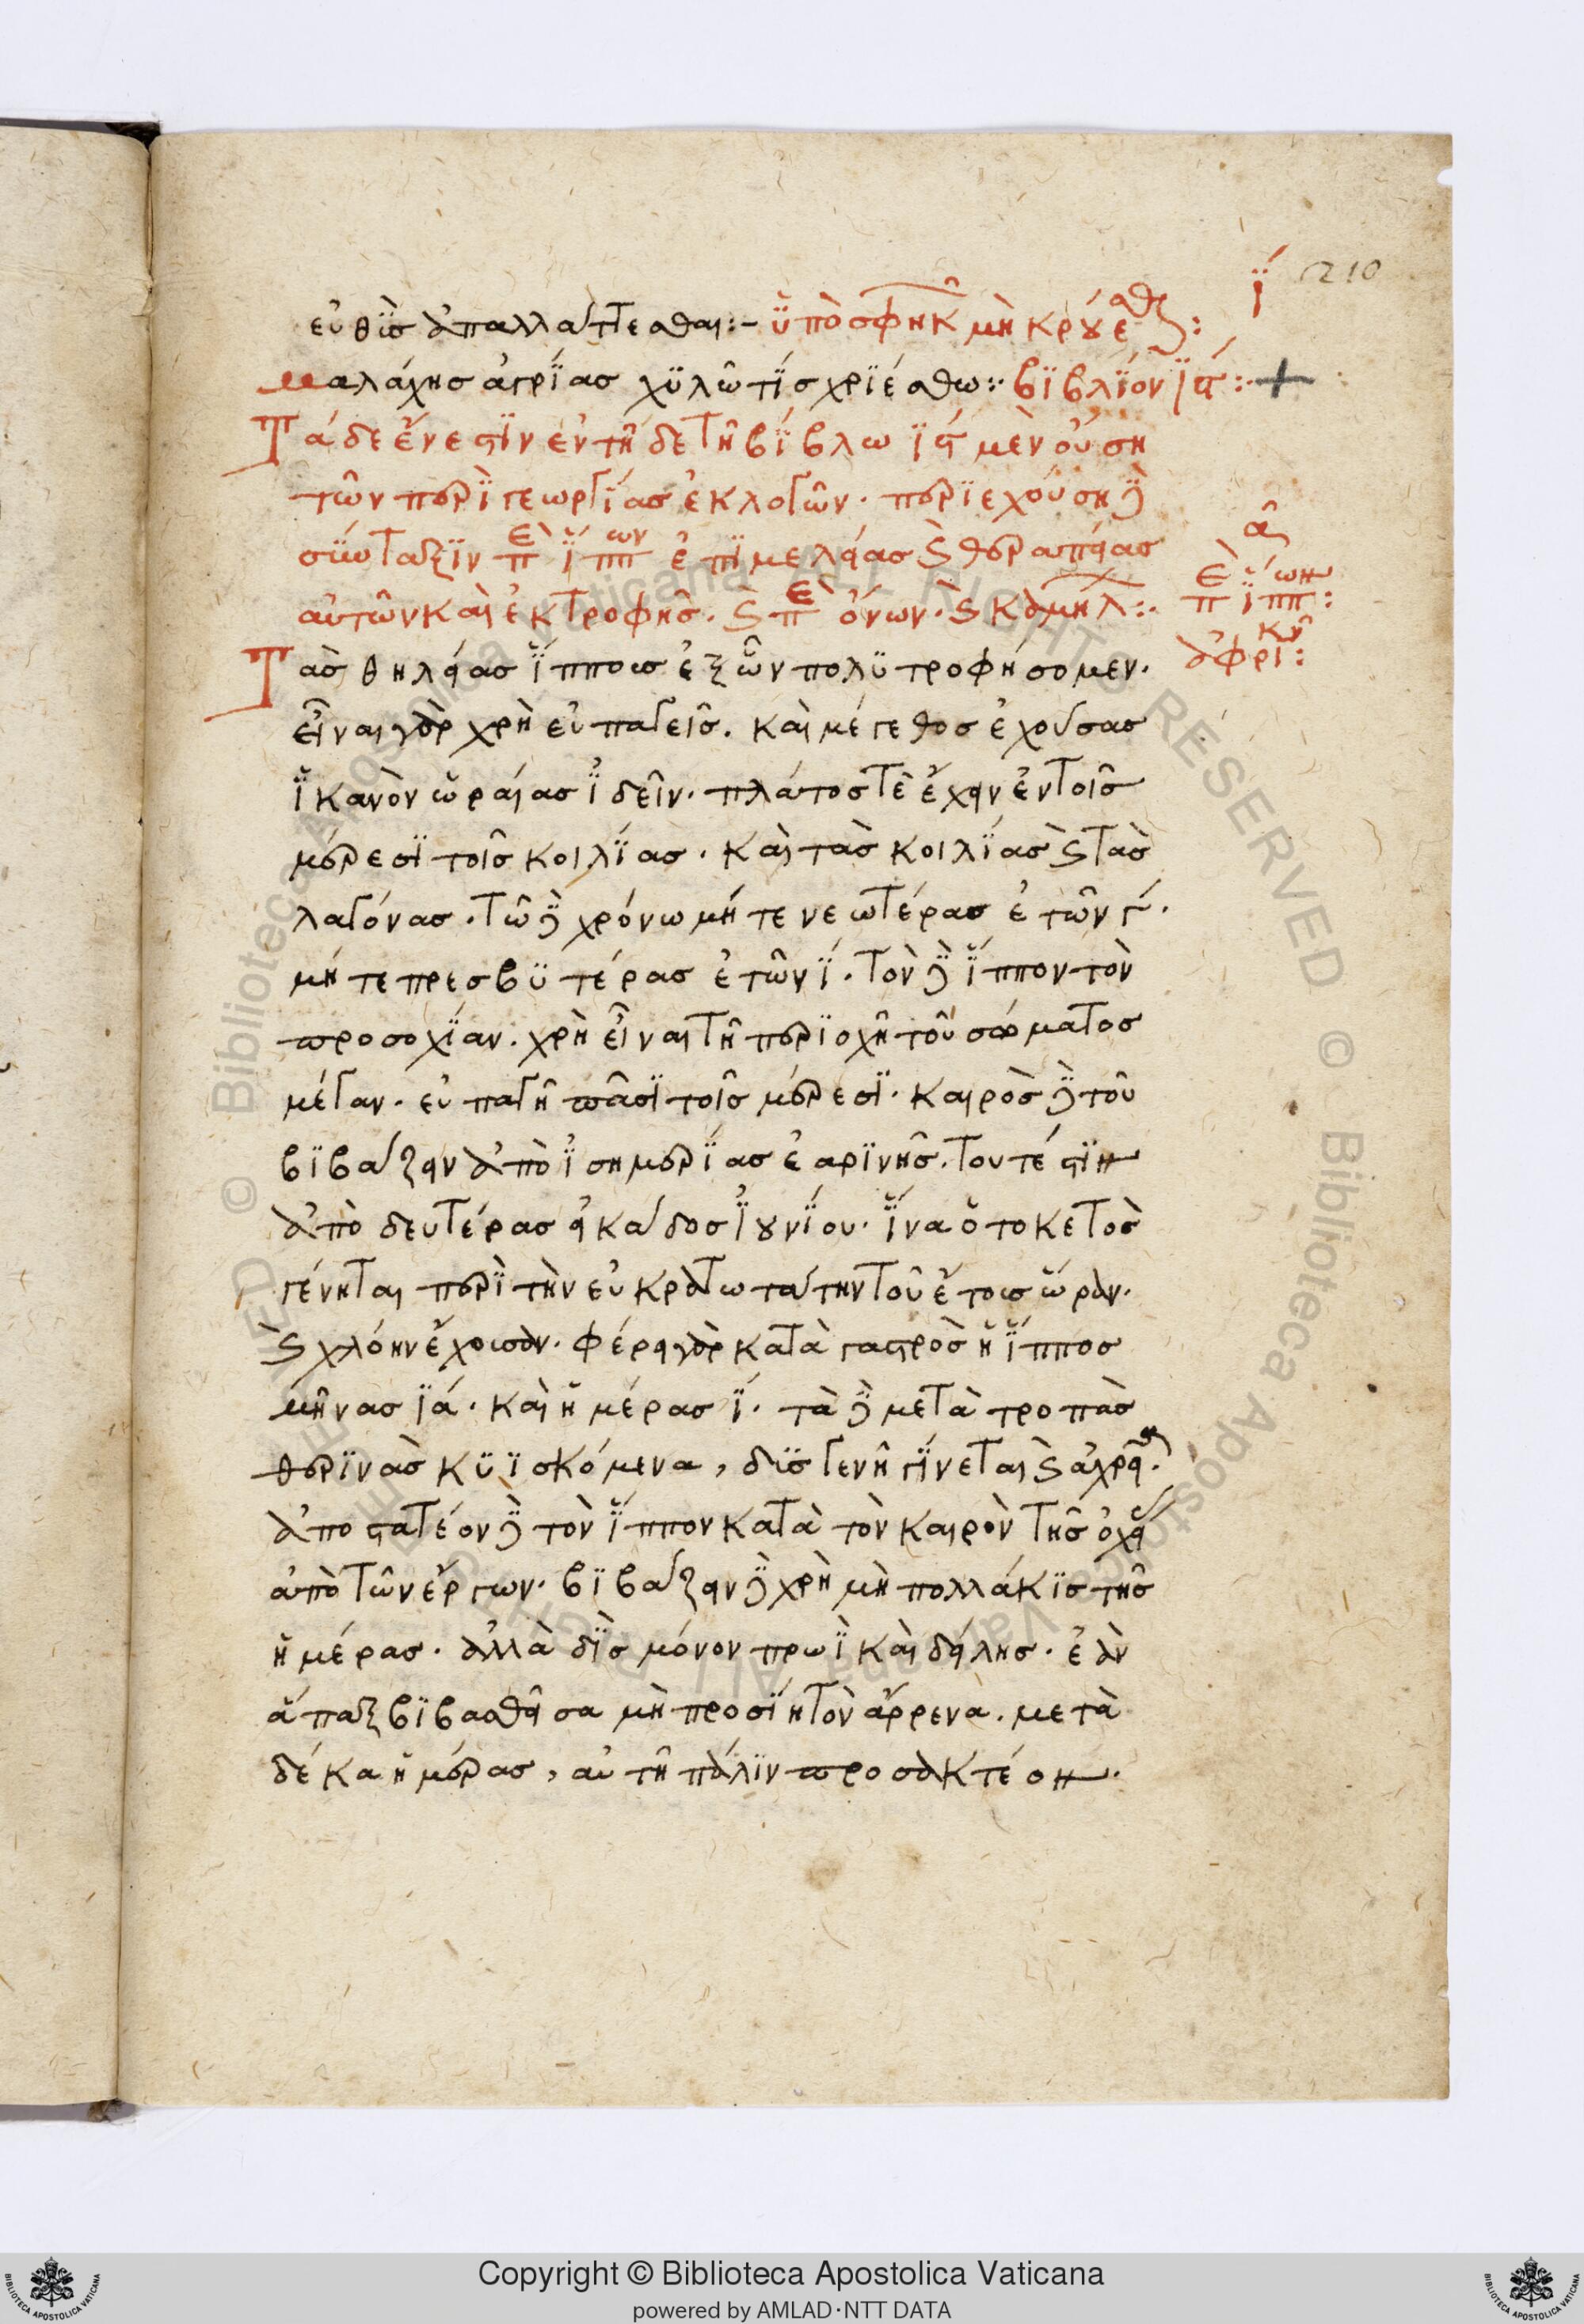 210
ϊ´
εὐθῢς ἀπαλλάττεσθαι:– ὑπὸ σφηκῶν μὴ κρούεσθαι:
μαλάχης ἀγρΐας χϋλῶ τΐς χριέσθω:· βϊβλΐον ϊε´:· +
Τάδε ἔνεστϊν ἐν τῆδε τῆ βΐβλω ϊϛ´ μὲν οὔση
τῶν περῒ γεωργΐας ἐκλογῶν· περϊεχούση δὲ
σύνταξϊν περὶ ἵππων ἐπϊμελείας καὶ θεραπείας
αὐτῶν καὶ ἐκτροφῆς. καὶ περὶ ὄνων· καὶ καμήλων:·
α
περὶ ἵππων:
ἀφρικανοῦ:
Τὰς θηλείας ἵππους ἐξ ὧν πολϋτροφήσομεν.
εἶναι γὰρ χρὴ εὐπαγεῖς. καὶ μέγεθος ἐχούσας
ϊ̔κανὸν ὡραίας ϊ̓δεῖν· πλάτος τὲ ἔχειν ἐν τοῖς
μέρεσϊ τοῖς κοιλΐας. καὶ τὰς κοιλΐας καὶ τὰς
λαγόνας. τῶ δὲ χρόνω μήτε νεωτέρας ἐτῶν γ´.
μήτε πρεσβϋτέρας ἐτῶν ϊ´. τὸν δὲ ἵππον τὸν
προσοχΐαν. χρὴ εἶναι τῆ περϊοχῆ τοῦ σώματος
μέγαν. εὐπαγῆ πᾶσϊ τοῖς μέρεσϊ. καιρὸς δὲ τοῦ
βϊβάζειν ἀπὸ ϊ̓σημερΐας ἐαρϊνῆς. τουτέστϊν
ἀπὸ δευτέρας εἰκάδος ϊ̓ουνΐου. ἵνα ὁ τοκετὸς
γένηται περῒ τὴν εὐκρατωτάτην τοῦ ἔτους ὥραν.
καὶ χλόην ἔχουσαν. φέρει γὰρ κατὰ γαστρὸς ἡ ἵππος
μῆνας ϊα´. καὶ ἡμέρας ϊ´. τὰ δὲ μετὰ τροπὰς
θερϊνὰς κϋϊσκόμενα, δϋσγενῆ γΐνεται καὶ ἀχρεῖα.
ἀποστατέον δὲ τὸν ἵππον κατὰ τὸν καιρὸν τῆς ὀχείας
ἀπὸ τῶν ἔργων. βϊβάζειν δὲ χρὴ μὴ πολλάκϊς τῆς
ἡμέρας. ἀλλὰ δῒς μόνον πρωῒ καὶ δείλης. ἐὰν
ἅπαξ βϊβασθεῖσα μὴ προσΐη τὸν ἄρρενα. μετὰ
δέκα ἡμέρας, αὐτῆ πάλϊν προσακτέον.